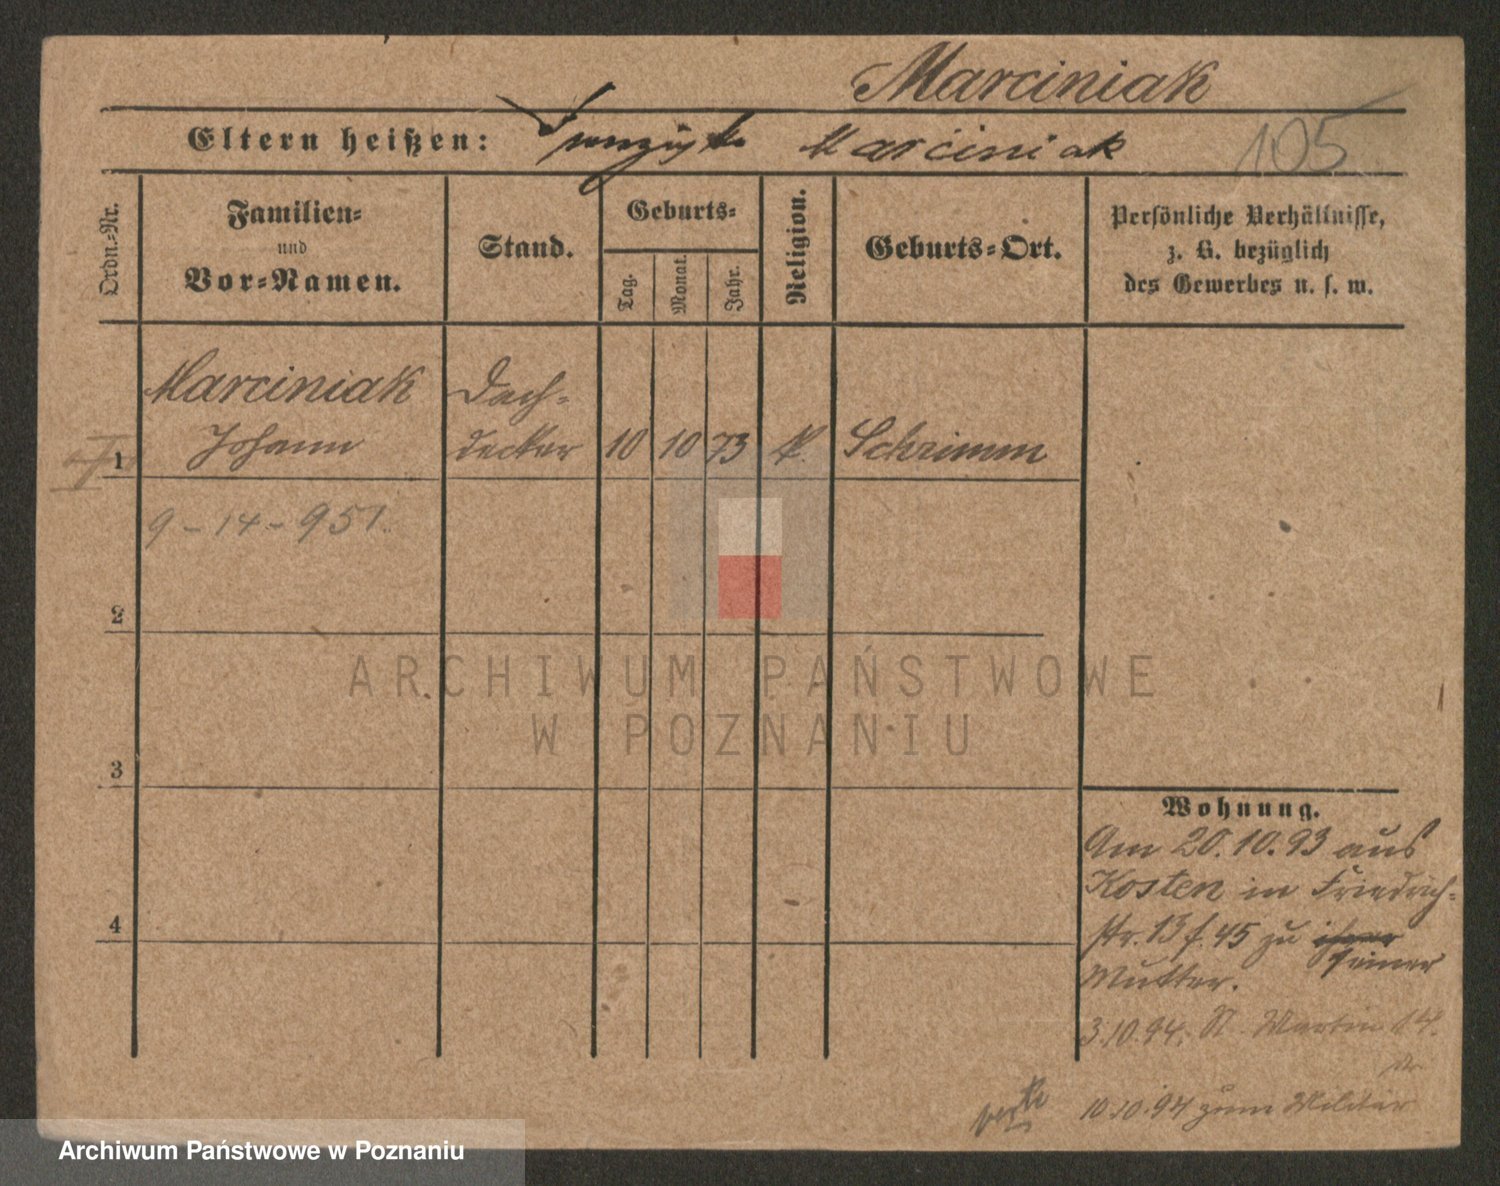 Marciniak
Eltern heißen: Marciniak
105
Ordn.-Nr.
Familien-
und
Vor-Namen.
Stand.
Geburts-
Tag.
Monat.
Jahr.
Religion.
Geburts-Ort.
Persönliche Verhältnisse,
z. B. bezüglich
des Gewerbes u. s. w.
Marciniak
Johann
Dach-
decker
10
10
73
k.
Schrimm
1
9-14-951.
2
3
4
Wohnung.
Am 20.10.93 aus
Kosten in Friedrich-
str. 13 f. 45 zu ihrer
seiner
Mutter.
3.10.94. St. Martin 14.
10.10.94 zum Militär
ARCHIWUM PAŃSTWOWE
W POZNANIU
Archiwum Państwowe w Poznaniu